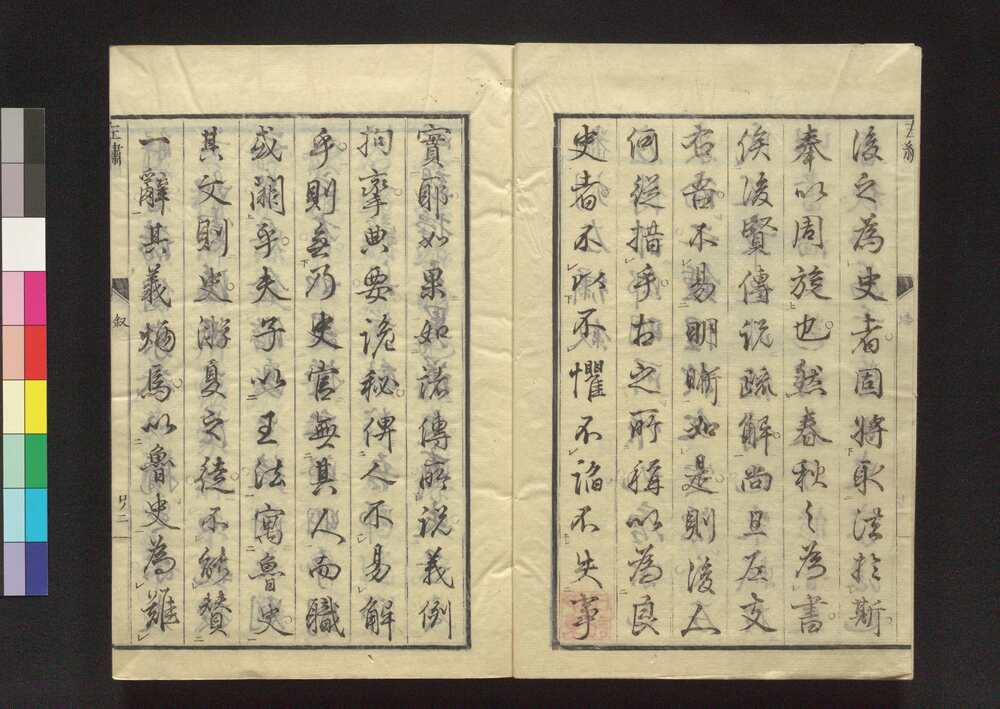 左繡
後之為史者固將取法於斯
奉以周旋也然春秋之為書
俟後賢傳説疏解尚且左支
右吾不易明晰如是則後人
何從措手古之所稱以為良
史者不不懼不諂不失事
實耶如果如諸傳所説義例
拘牽典要詭秘俾人不易解
乎則無乃史官無其人而職
或闕乎夫子以王法寓魯史
其文則史游夏之徒不能贊
一辭其義炳焉以魯史為難
左繡
叙
口ノ二